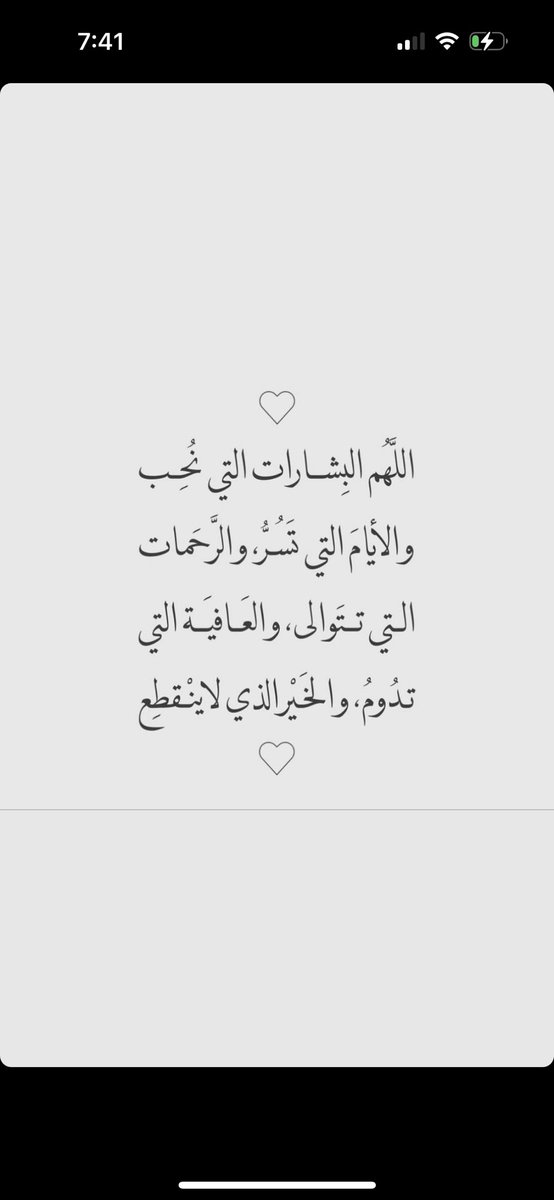 7:41
اللَّهُم البِشـارات التي نُحِـب
والأيامَ التي تَسُـرُّ، والرَّحَمات
الـتي تـتَوالى، والعَـافيَـة التي
تدُومُ، والخَيْر الذي لاينْـقطِع